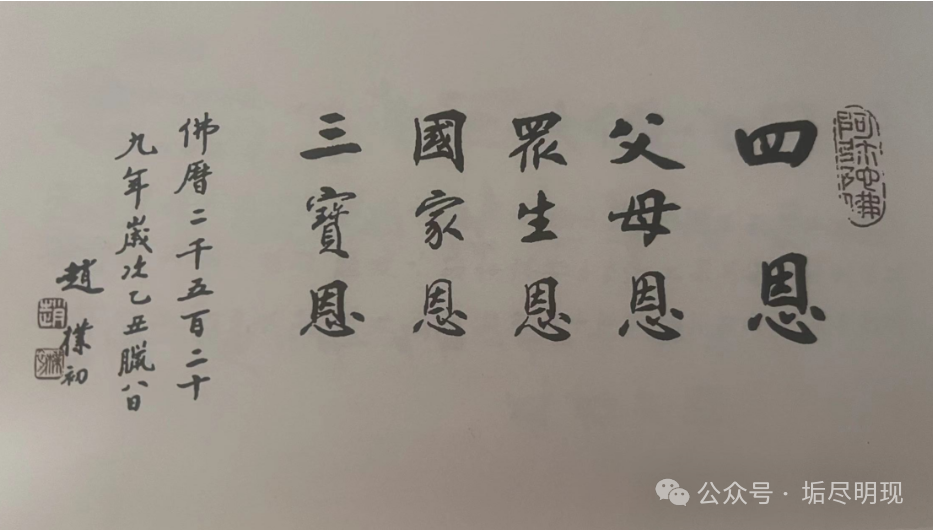 阿弥陀佛
四恩
父母恩
眾生恩
國家恩
三寶恩
佛曆二千五百二十
九年歲次乙丑臘八日
趙樸初
公众号·垢尽明现